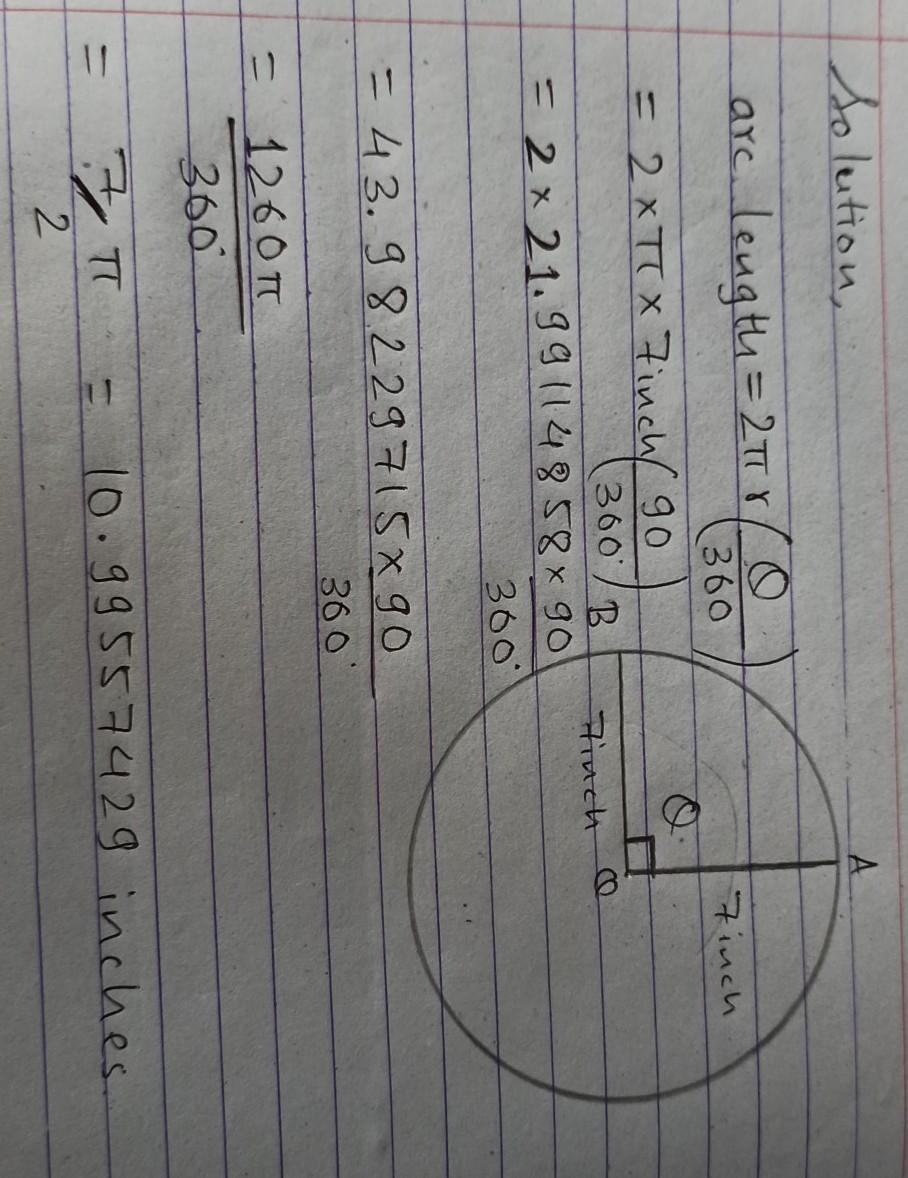 Solution,
arc length = 2πr(θ/360)
= 2 × π × 7inch(90/360°)
= 2 × 21.99114858 × 90/360°
= 43.98229715 × 90/360°
= 1260π/360°
= 7/2 π = 10.99557429 inches
A
7inch
θ
B
7inch
O